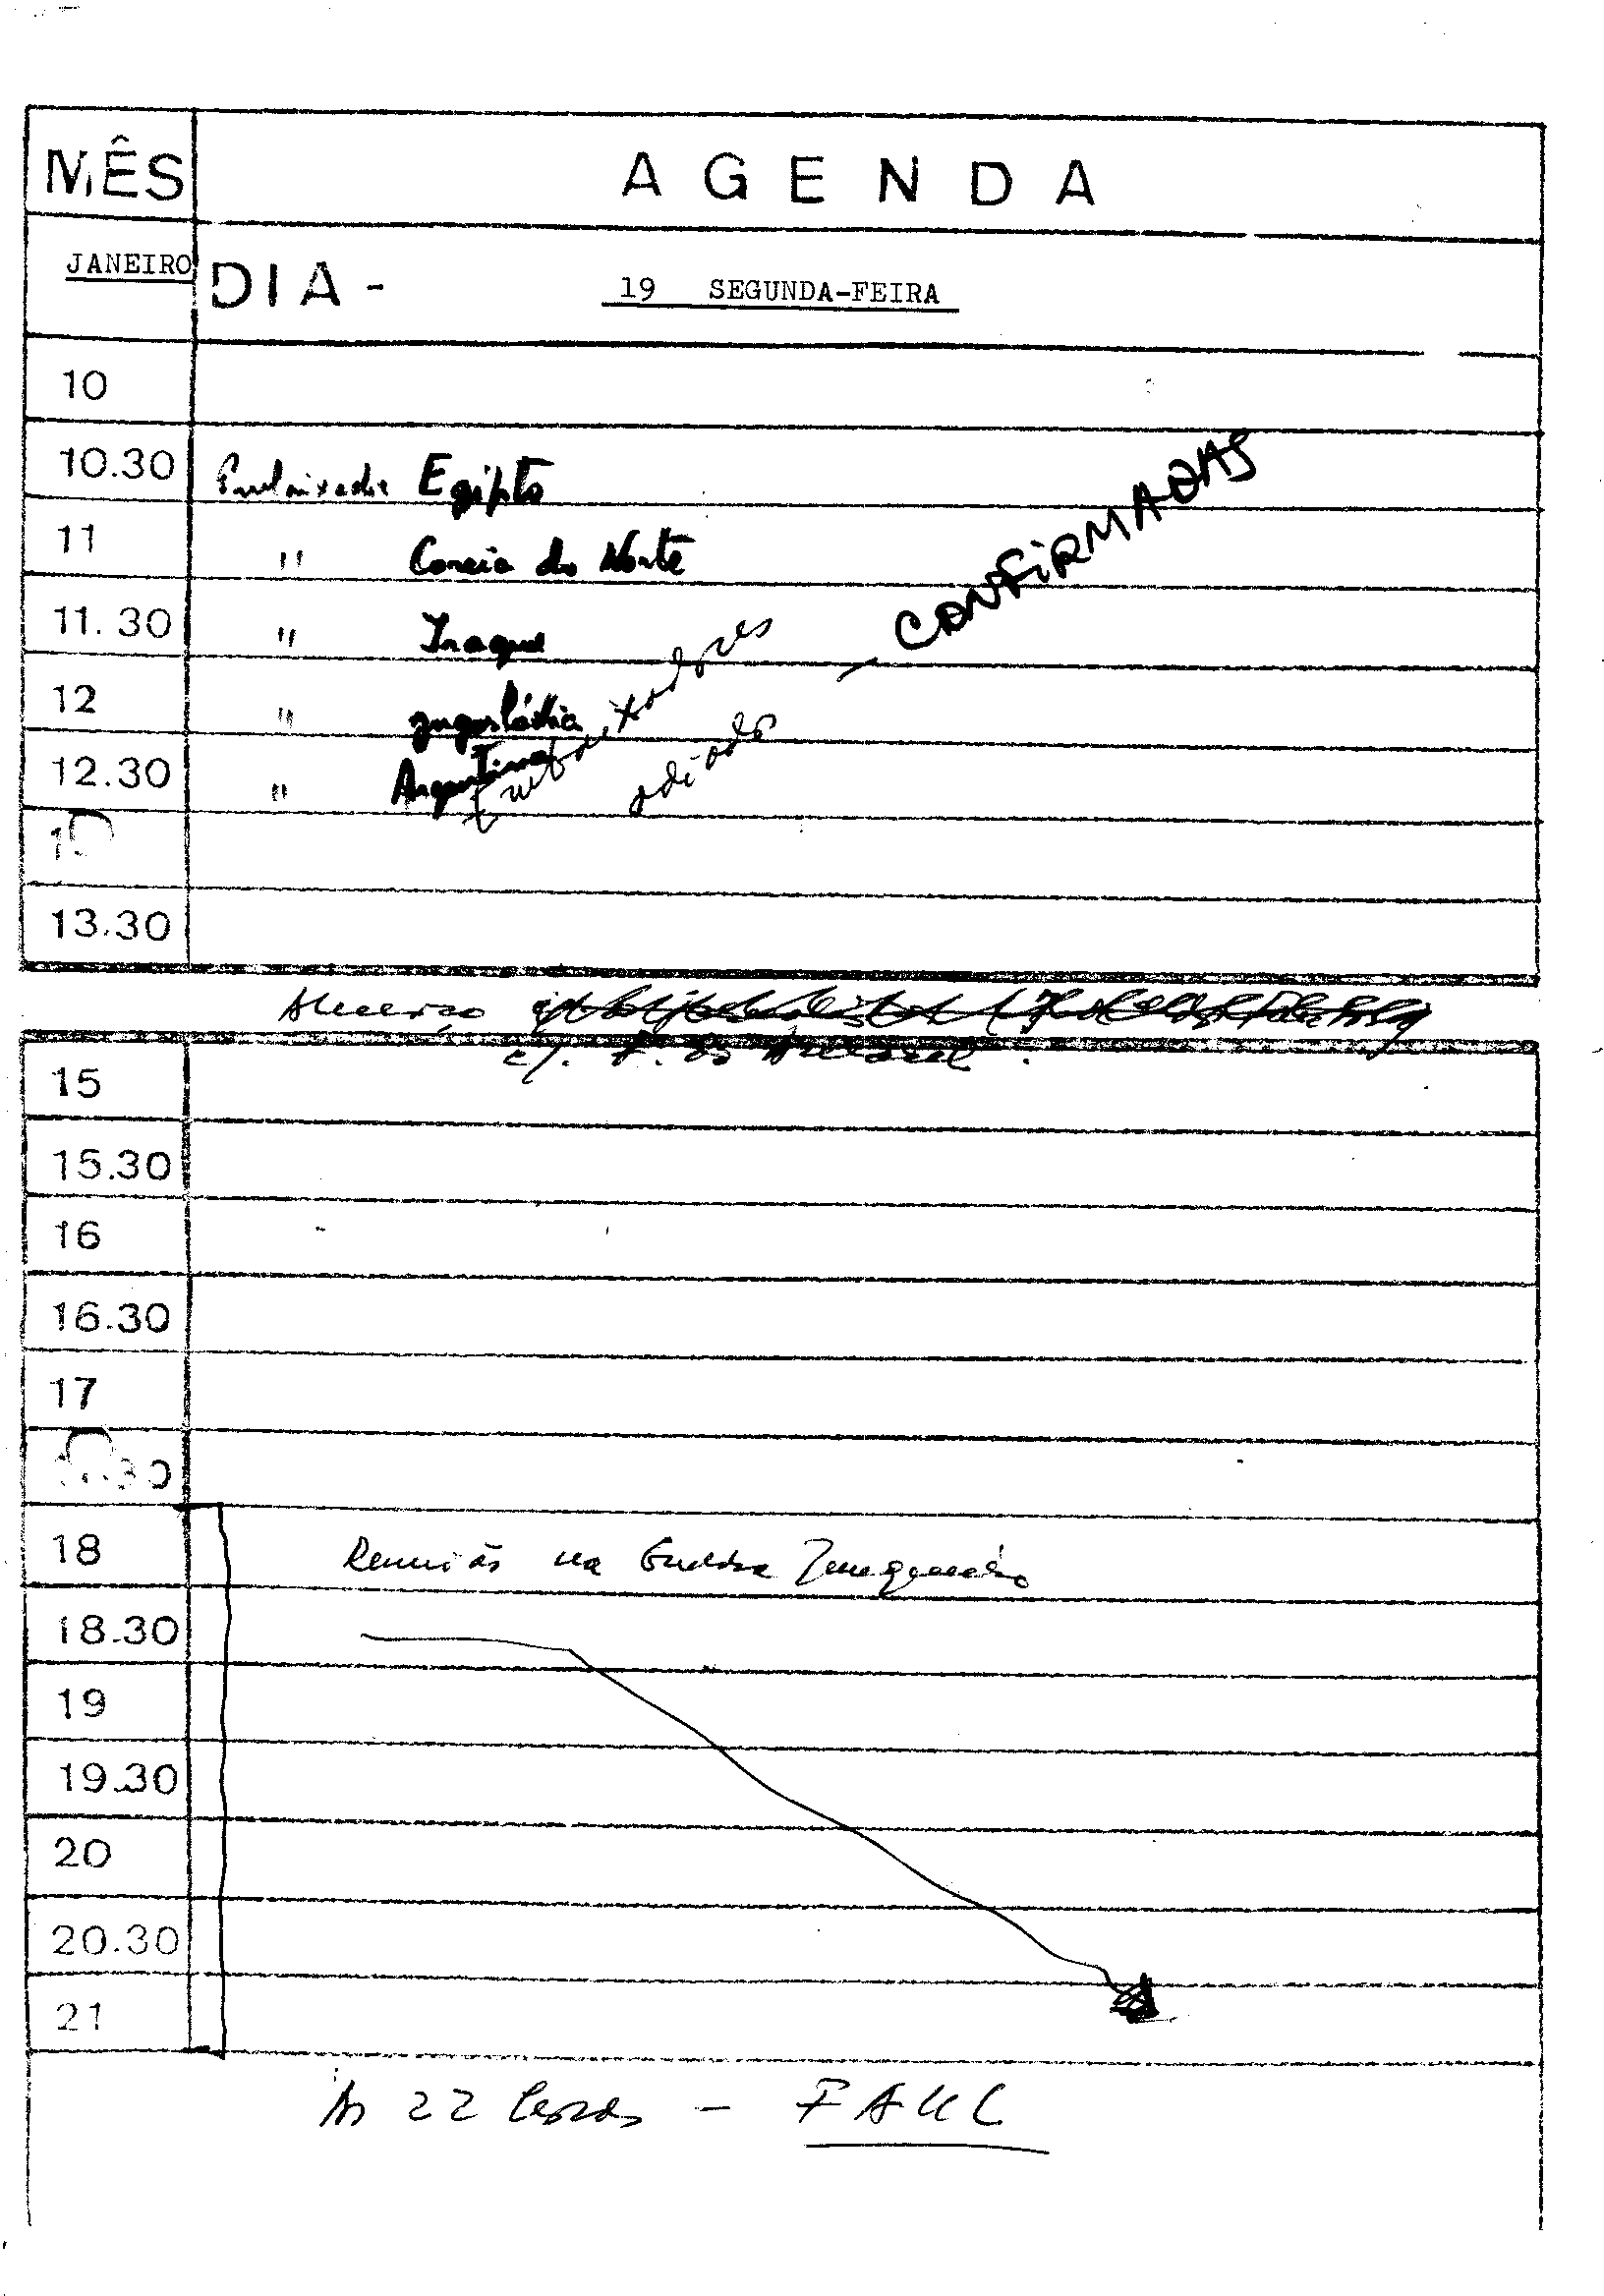 MÊS AGENDA
JANEIRO DIA - 19 SEGUNDA-FEIRA
10
10.30 Embaixador Egipto
11 " Coreia do Norte
11.30 " Iraque
12 " Jugoslávia
12.30 " Argentina
Embaixadores - CONFIRMADAS
adiado
13.30
Almoço
c/.
15
15.30
16
16.30
17
.30
18 Reunião na
18.30
19
19.30
20
20.30
21
Às 22 horas - FAUL